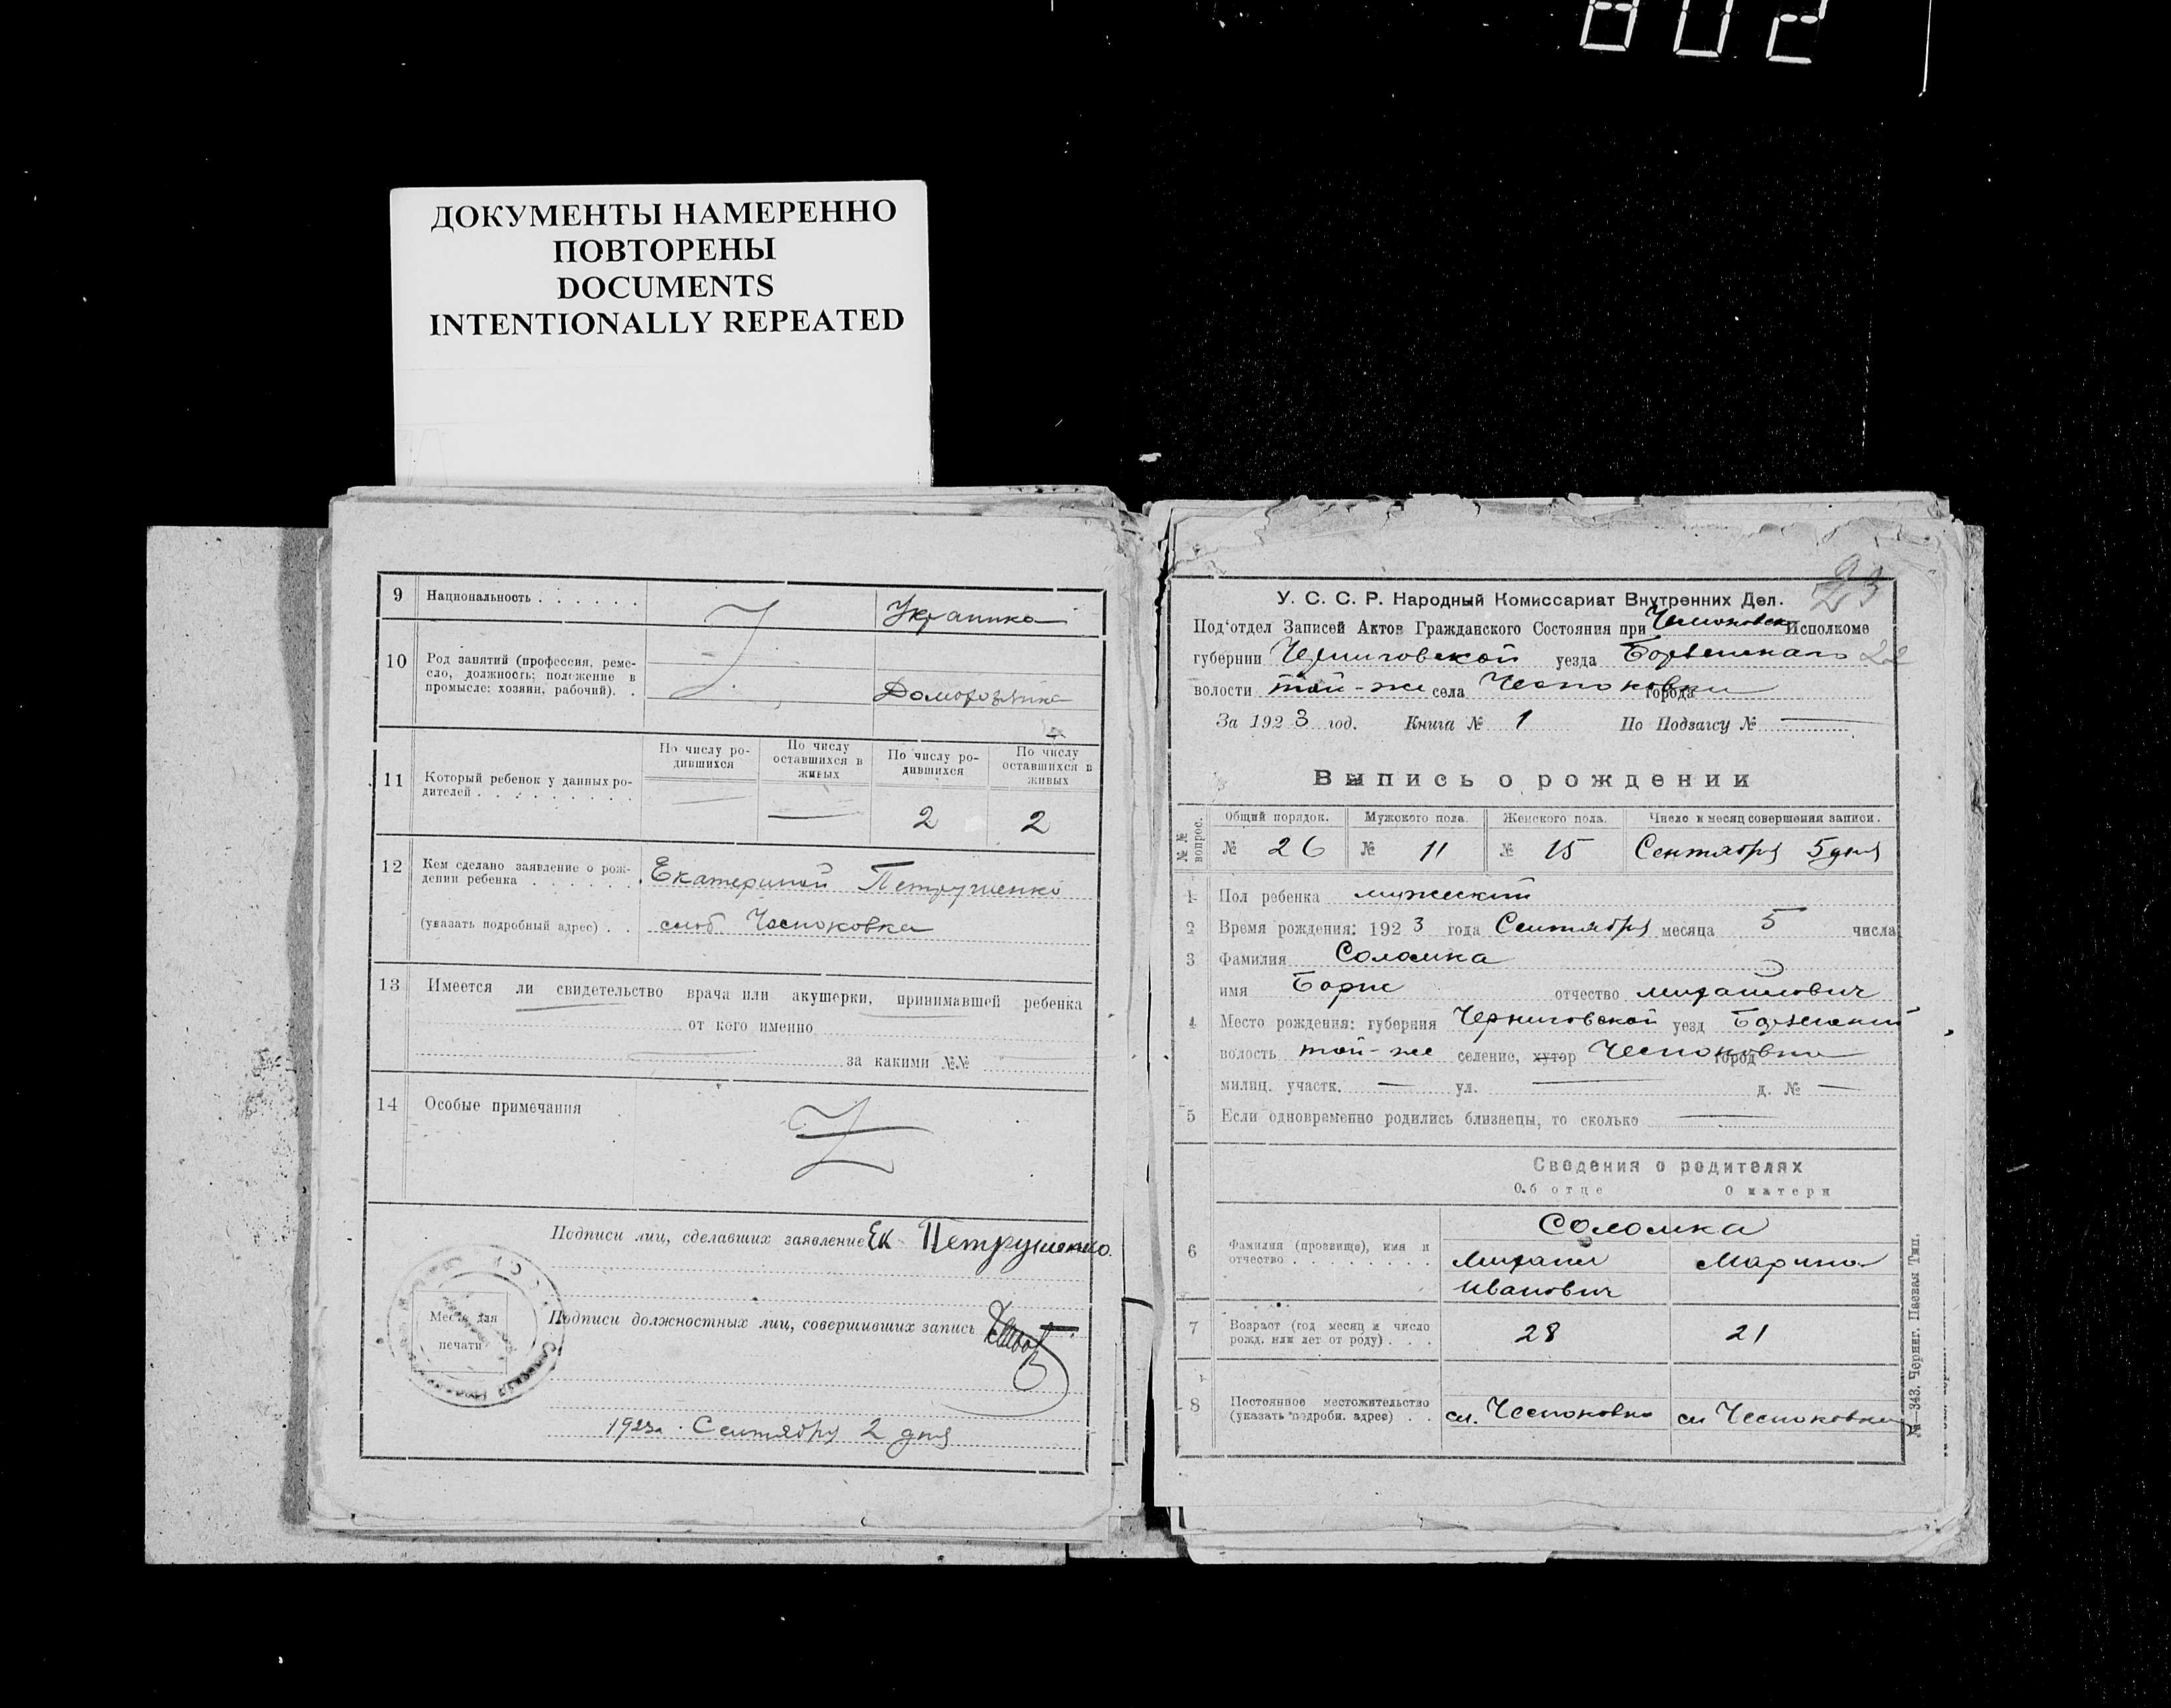 802
ДОКУМЕНТЫ НАМЕРЕННО
ПОВТОРЕНЫ
DOCUMENTS
INTENTIONALLY REPEATED
9 Национальность . . . . . . Украинка
10 Род занятий (профессия, реме-
сло, должность; положение в
промысле: хозяин, рабочий). . Домохозяйка
11 Который ребенок у данных ро-
дителей . . . . . . . . .
По числу ро-
дившихся
По числу
оставшихся в
живых
По числу ро-
дившихся
По числу
оставшихся в
живых
— — 2 2
12 Кем сделано заявление о рож-
дении ребенка . . . . . . . Екатериной Петрушенко
(указать подробный адрес) . . слоб. Чесноковка
13 Имеется ли свидетельство врача или акушерки, принимавшей ребенка
от кого именно
за какими №№
14 Особые примечания
Подписи лиц, сделавших заявление Ек Петрушенко.
Место для
печати
Подписи должностных лиц, совершивших запись
1923г. Сентября 2 дня
23
У. С. С. Р. Народный Комиссариат Внутренних Дел.
Под'отдел Записей Актов Гражданского Состояния при Исполкоме
губернии Черниговской уезда Борзенского 22
волости той-же села Чесноковки города
За 1923 год. Книга № 1 По Подзагсу № —
Выпись о рождении
№№ вопрос.
Общий порядок. Мужского пола. Женского пола. Число и месяц совершения записи.
№ 26 № 11 № 15 Сентября 5 дня
1 Пол ребенка мужеский
2 Время рождения: 1923 года Сентября месяца 5 числа
3 Фамилия Соломка
имя Борис отчество Михайлович
4 Место рождения: губерния Черниговской уезд Борзенский
волость той-же селение, хутор Чесноковка город
милиц. участк. — ул. — д. № —
5 Если одновременно родились близнецы, то сколько —
Сведения о родителях
Об отце О матери
Соломка
6 Фамилия (прозвище), имя и
отчество . . . . . . . .
Михаил Марина
Иванович
7 Возраст (год месяц и число
рожд. или лет от роду) . . . 28 21
8 Постоянное местожительство
(указать подробн. адрес) . . сл. Чесноковка сл Чесноковка
№—343. Черниг. Паевая Тип.